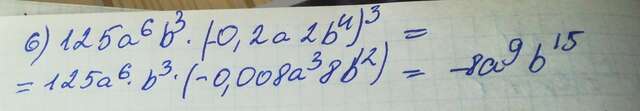 б) 125a⁶b³·(-0,2a2b⁴)³ =
= 125a⁶·b³·(-0,008a³8b¹²) = -8a⁹b¹⁵